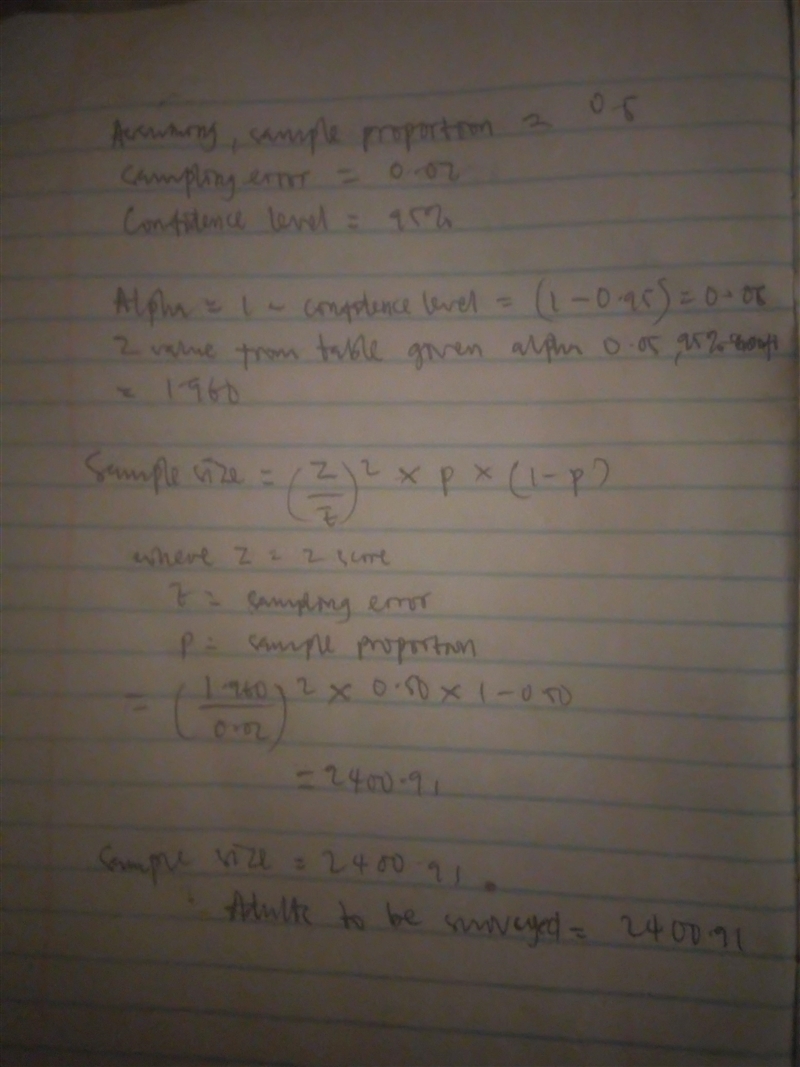 Assuming, sample proportion = 0.5
Sampling error = 0.02
Confidence level = 95%
Alpha = 1 - confidence level = (1-0.95) = 0.05
Z value from table given alpha 0.05, 95%
= 1.960
Sample size = (Z/E)² × p × (1-p)
where Z = Z score
E = sampling error
p = sample proportion
= (1.960/0.02)² × 0.50 × 1-0.50
= 2400.91
Sample size = 2400.91.
Adults to be surveyed = 2400.91